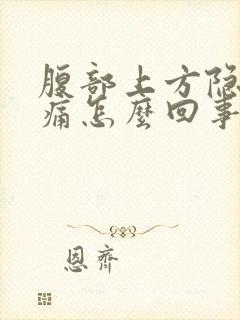 腹部上方隐
痛怎麼回事
恩齊